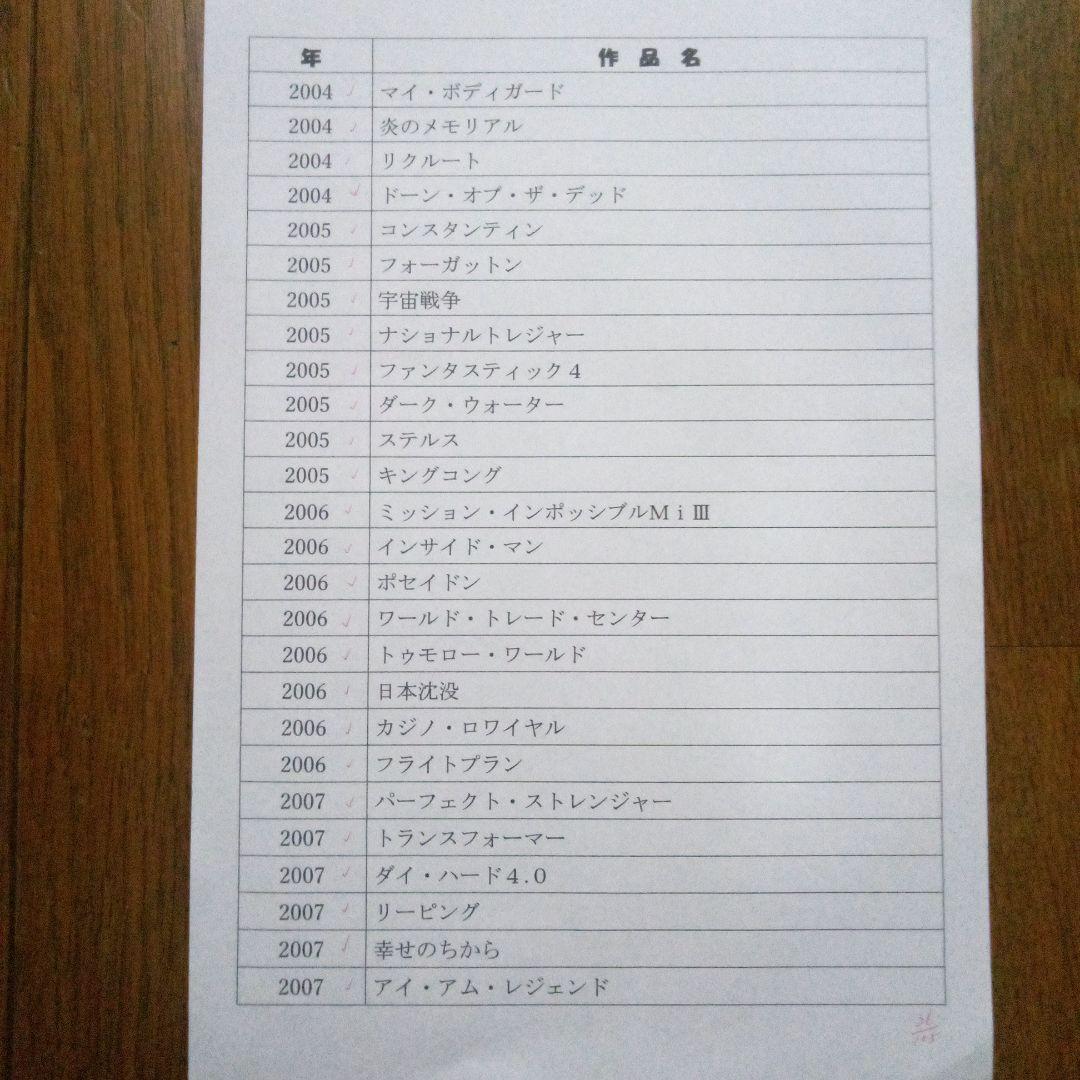 年 作品名
2004 マイ・ボディガード
2004 炎のメモリアル
2004 リクルート
2004 ドーン・オブ・ザ・デッド
2005 コンスタンティン
2005 フォーガットン
2005 宇宙戦争
2005 ナショナルトレジャー
2005 ファンタスティック４
2005 ダーク・ウォーター
2005 ステルス
2005 キングコング
2006 ミッション・インポッシブルＭｉⅢ
2006 インサイド・マン
2006 ポセイドン
2006 ワールド・トレード・センター
2006 トゥモロー・ワールド
2006 日本沈没
2006 カジノ・ロワイヤル
2006 フライトプラン
2007 パーフェクト・ストレンジャー
2007 トランスフォーマー
2007 ダイ・ハード４.０
2007 リーピング
2007 幸せのちから
2007 アイ・アム・レジェンド